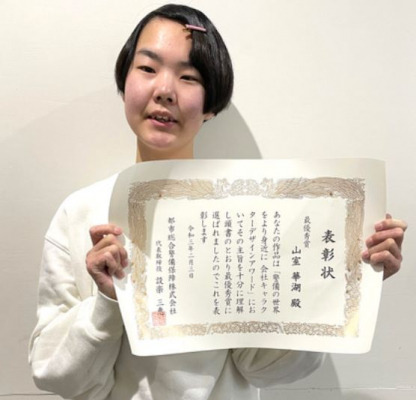 表彰状
最優秀賞
山室 華湖 殿
あなたの作品は「警備の世界
をより身近に 会社キャラク
ターデザインアワード」にお
いてその主旨を十分に理解
し頭書のとおり最優秀賞に
選ばれましたのでこれを表
彰します
令和三年二月三日
都市総合警備保障株式会社
代表取締役 設楽 三